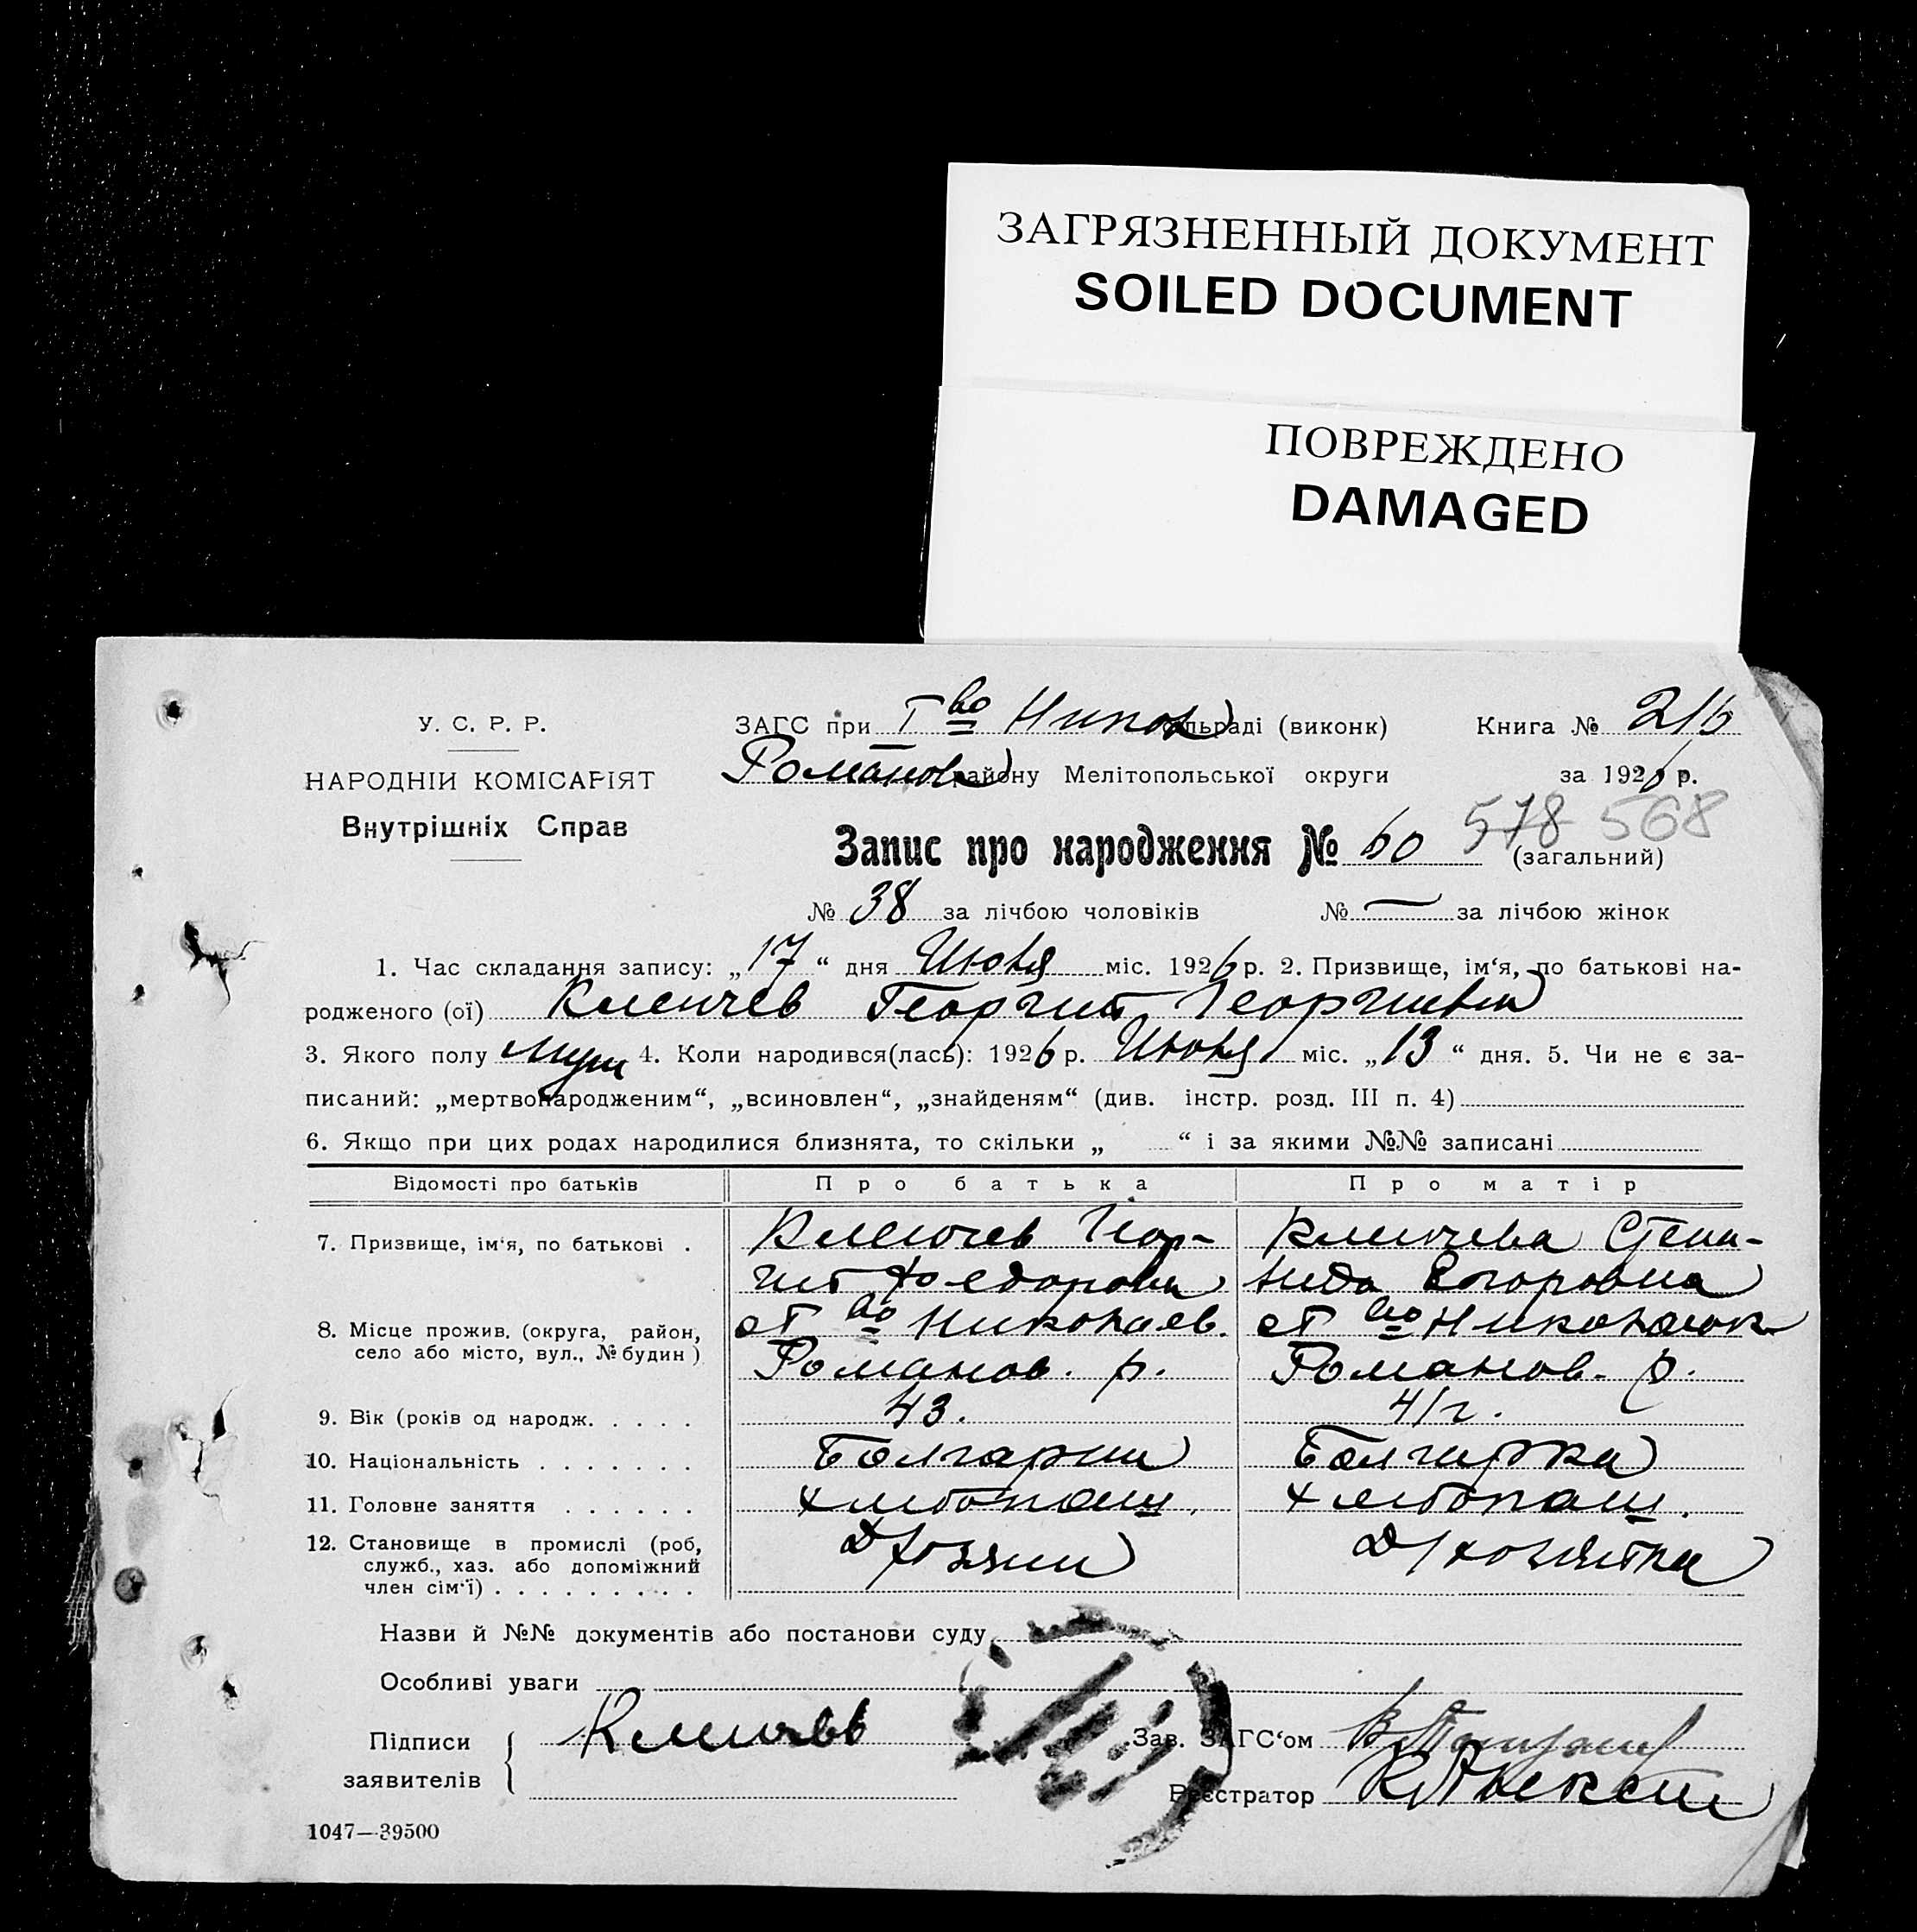 ЗАГРЯЗНЕННЫЙ ДОКУМЕНТ
SOILED DOCUMENT
ПОВРЕЖДЕНО
DAMAGED
У. С. Р. Р.
НАРОДНІЙ КОМІСАРІЯТ
Внутрішніх Справ
ЗАГС при Т во Никол сільраді (виконк) Книга № 2/б
Романов району Мелітопольської округи за 1926 р.
578 568
Запис про народження № 60 (загальний)
№ 38 за лічбою чоловіків № — за лічбою жінок
1. Час складання запису: „17“ дня Июня міс. 1926 р. 2. Призвище, ім‘я, по батькові на-
родженого (ої) Клепчев Георгий Георгиевич
3. Якого полу муж 4. Коли народився(лась): 1926 р. Июня міс. „13“ дня. 5. Чи не є за-
писаний: „мертвонародженим“, „всиновлен“, „знайденям“ (див. інстр. розд. III п. 4)
6. Якщо при цих родах народилися близнята, то скільки „ “ і за якими №№ записані
Відомості про батьків Про батька Про матір
7. Призвище, ім‘я, по батькові . Геор- Степа-
гий Федоров нида Егоровна
8. Місце прожив. (округа, район, ст во Николаев. ст во
село або місто, вул., № будин ) Романов. р. Романов. р.
9. Вік (років од народж. . . . . 43. 41 г.
10. Національність . . . . . . . Болгарин Болгарка
11. Головне заняття . . . . . . хлебопаш. хлебопаш.
12. Становище в промислі (роб, Д/хозяин Д/хозяйка
служб., хаз. або допоміжний
член сім‘ї) . . . . . . . . .
Назви й №№ документів або постанови суду
Особливі уваги
Підписи Зав. ЗАГС‘ом
заявителів Реєстратор
1047—39500